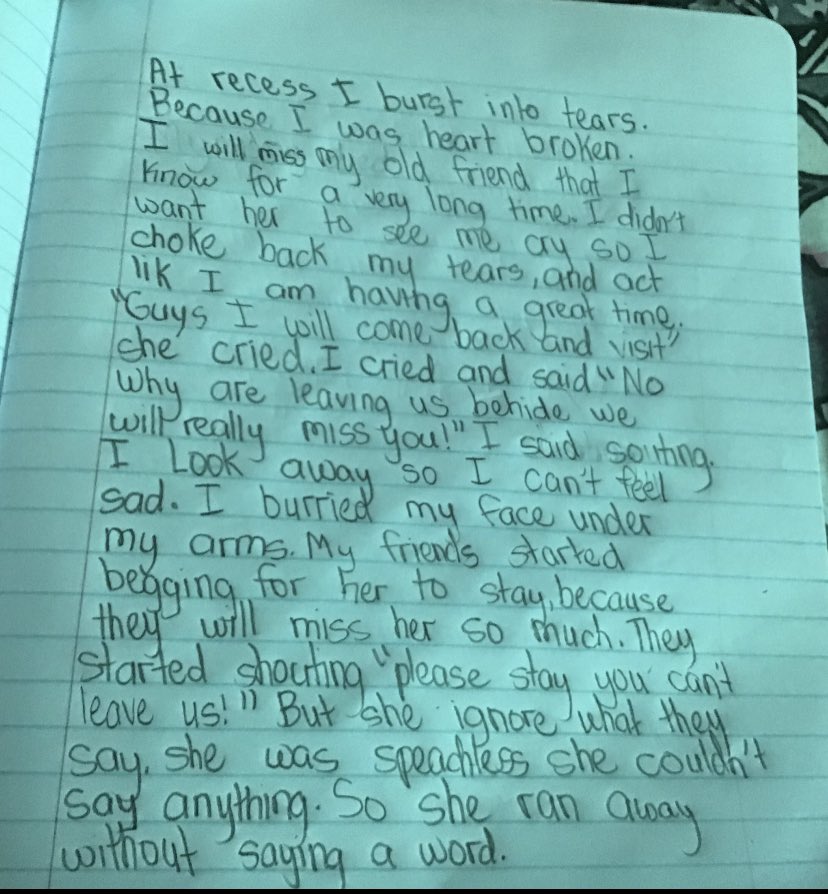 At recess I burst into tears.
Because I was heart broken.
I will miss my old friend that I
know for a very long time. I didn't
want her to see me cry so I
choke back my tears, and act
lik I am having a great time.
"Guys I will come back and visit"
she cried. I cried and said "No
why are leaving us behide we
will really miss you!" I said souting.
I Look away so I can't feel
sad. I burried my face under
my arms. My friends started
begging for her to stay, because
they will miss her so much. They
started shouting "please stay you can't
leave us!" But she ignore what they
say, she was speachless she couldn't
say anything. So she ran away
without saying a word.